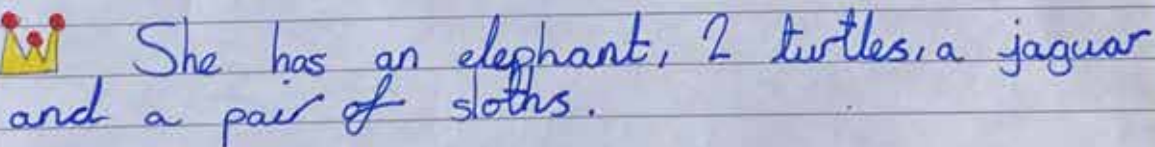 She has an elephant, 2 turtles, a jaguar
and a pair of sloths.